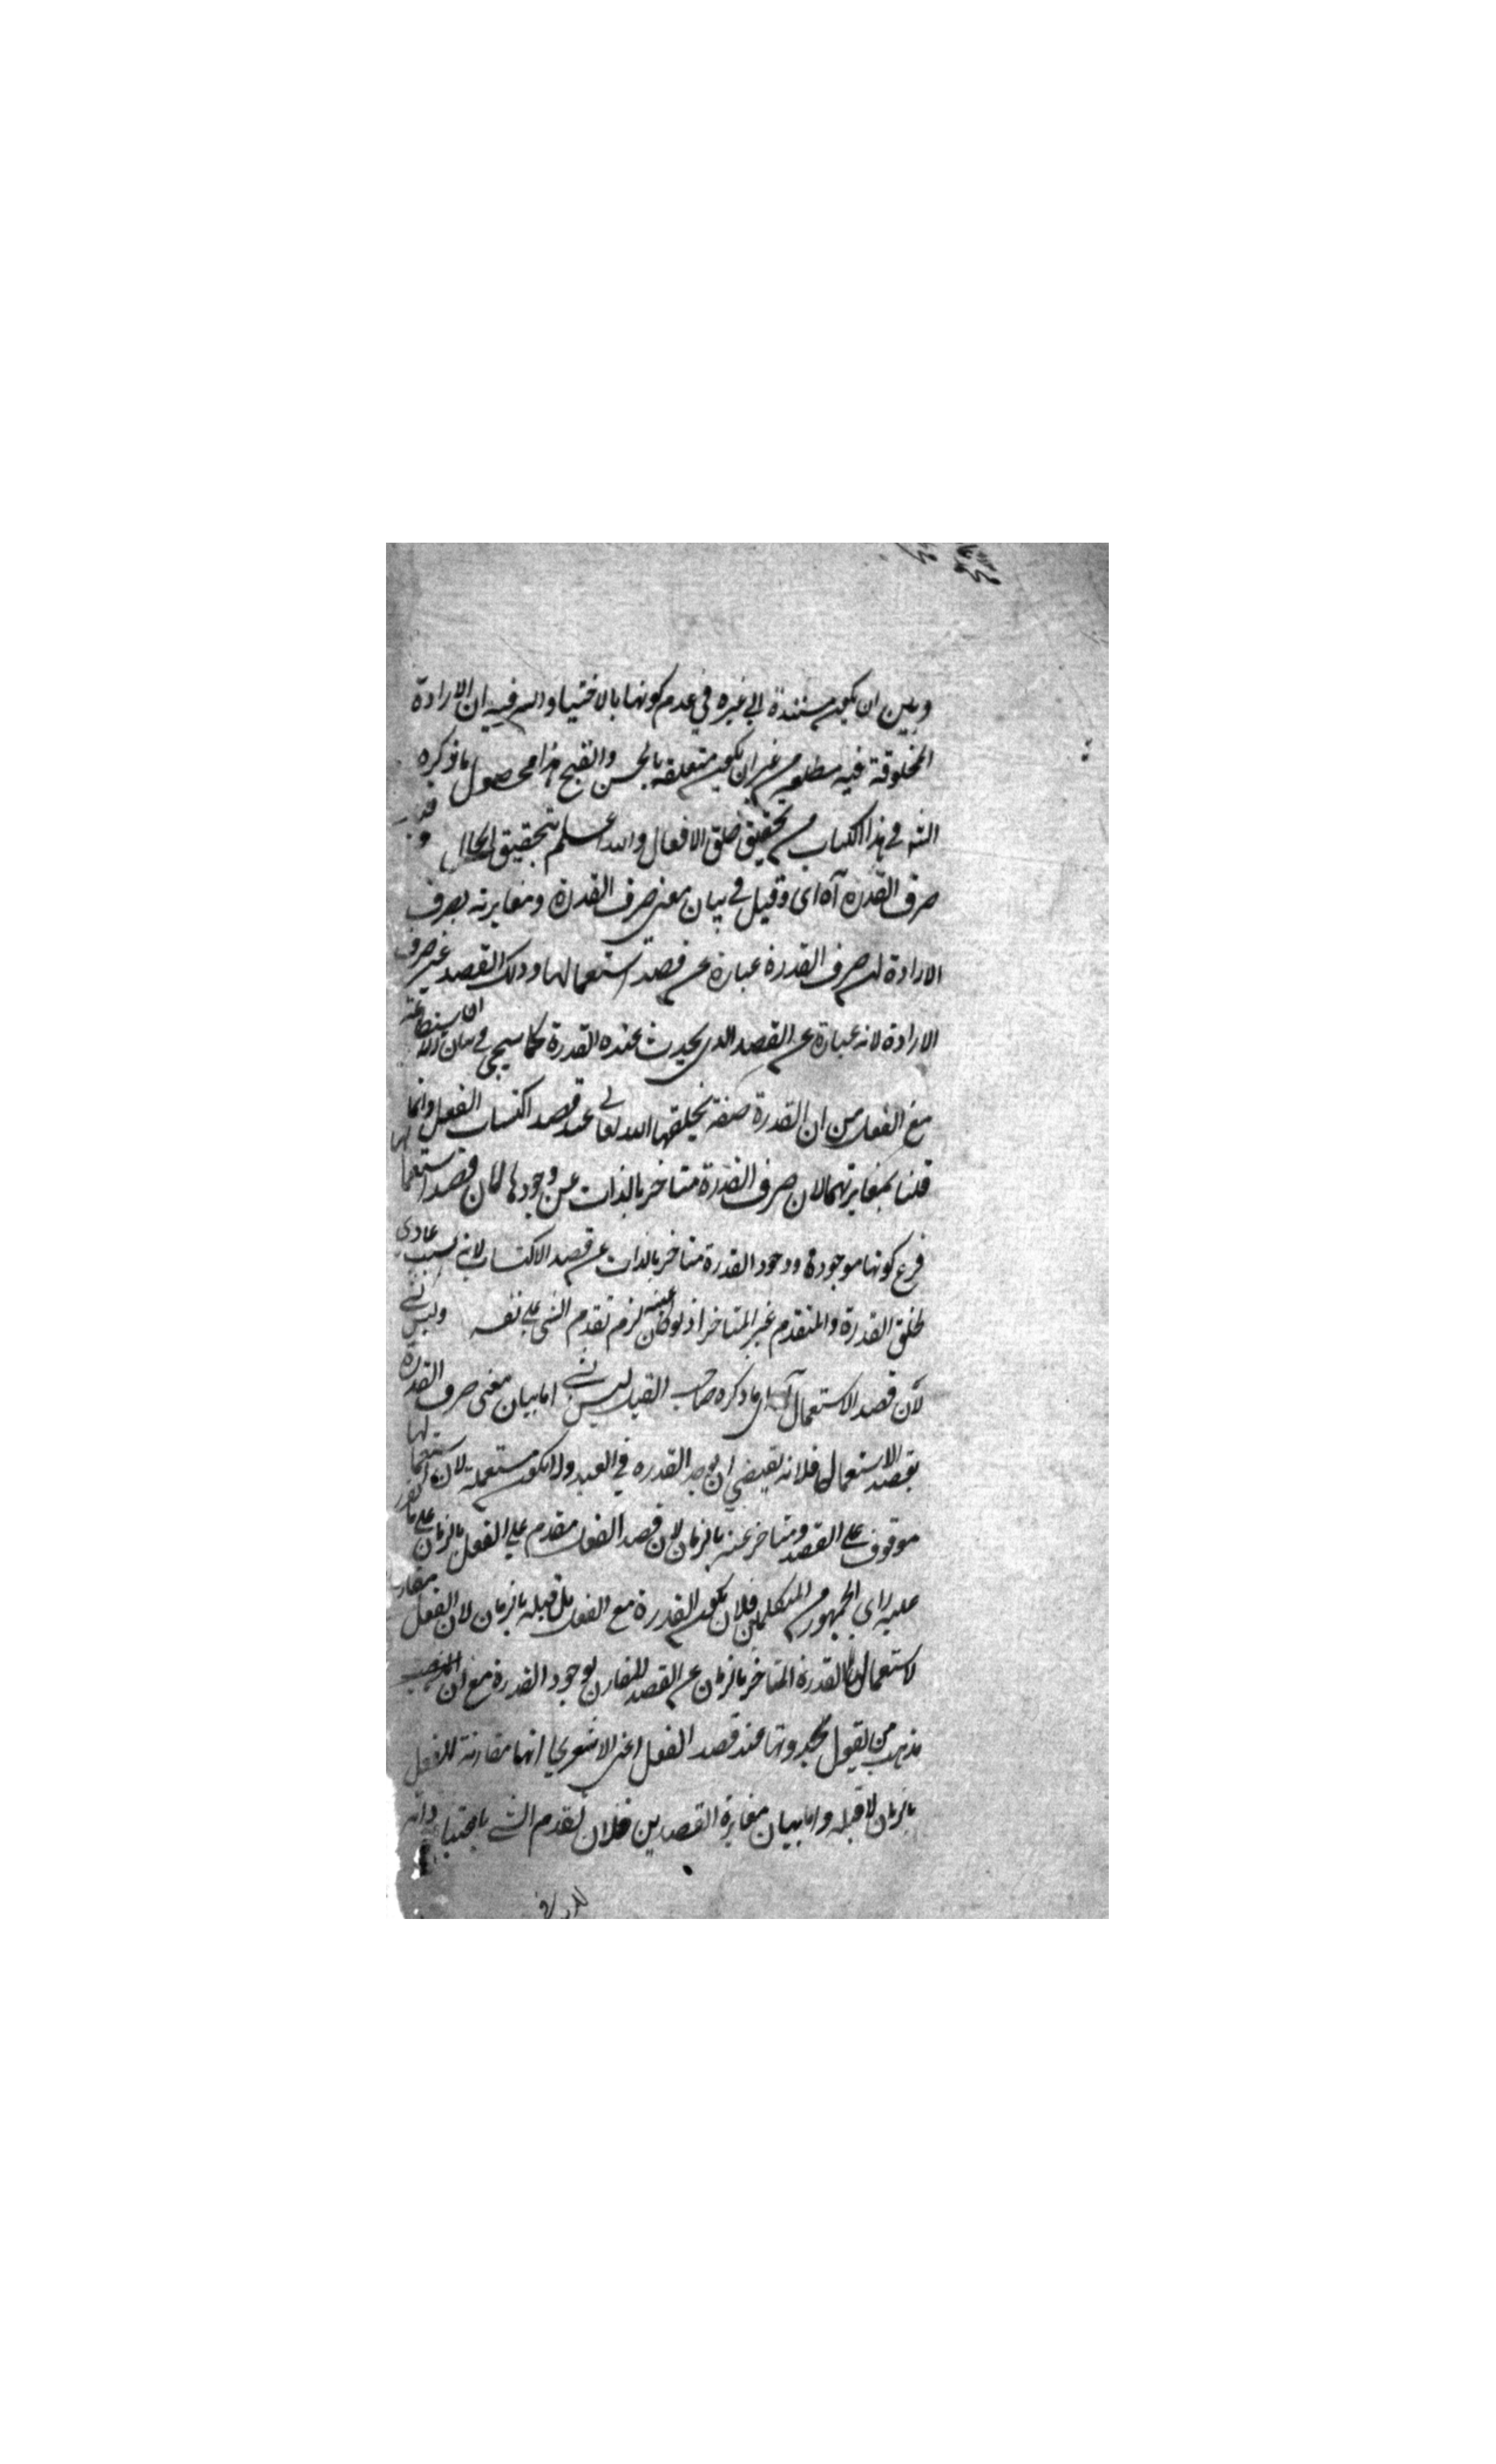 وبين ان يكون مستندة الى غيره في عدم كونها بالاختيار والسر فيه ان الارادة
المخلوقة فيه مطلق من غير ان يكون متعلقه بالحسن والقبح هذا محصول ما ذكره
الشه في هذا الكتاب من تحقيق خلق الافعال والله اعلم بتحقيق الحال قد
صرف القدرة آه اى وقيل في بيان معنى صرف القدرة ومغايرته بصرف
الارادة ان صرف القدرة عبارة عن قصد استعمالها وذلك القصد غير صرف
الارادة لانه عبارة عن القصد الذى يحدث عنده القدرة كما سيجى في بيان ان الاستطاعة
مع الفعل من ان القدرة صفة يخلقها الله تعالى عند قصد اكتساب الفعل وانما
قلنا بمغايرتهما لان صرف القدرة متاخر بالذات عن وجودها لان قصد استعمالها
فرع كونها موجودة ووجود القدرة متاخر بالذات عن قصد الاكتساب لانه سبب عادى
لخلق القدرة والمتقدم غير المتاخر اذ لو كان عينه لزم تقدم الشى على نفسه وليس بشے
لان قصد الاستعمال آه اى ما ذكره صاحب القيل ليس بشے اما بيان معنى صرف القدرة
بقصد الاستعمال فلانه يقتضي ان يوجد القدره في العبد ولا يكون مستعملة لان استعمالها
موقوف على القصد ومتاخر عنه بالزمان لان قصد الفعل مقدم على الفعل بالزمان على ما تقرر
عليه راى الجمهور من المتكلمين فلا يكون القدرة مع الفعل بل قبله بالزمان لان الفعل مقارن
لاستعمال القدرة المتاخر بالزمان عن القصد المقارن لوجود القدرة مع ان
مذهب من يقول بحدوثها عند قصد الفعل اعنى الاشعري انها مقارنة للفعل
بالزمان لا قبله واما بيان مغايرة القصدين فلان تقدم الشے باعتبار ذاته